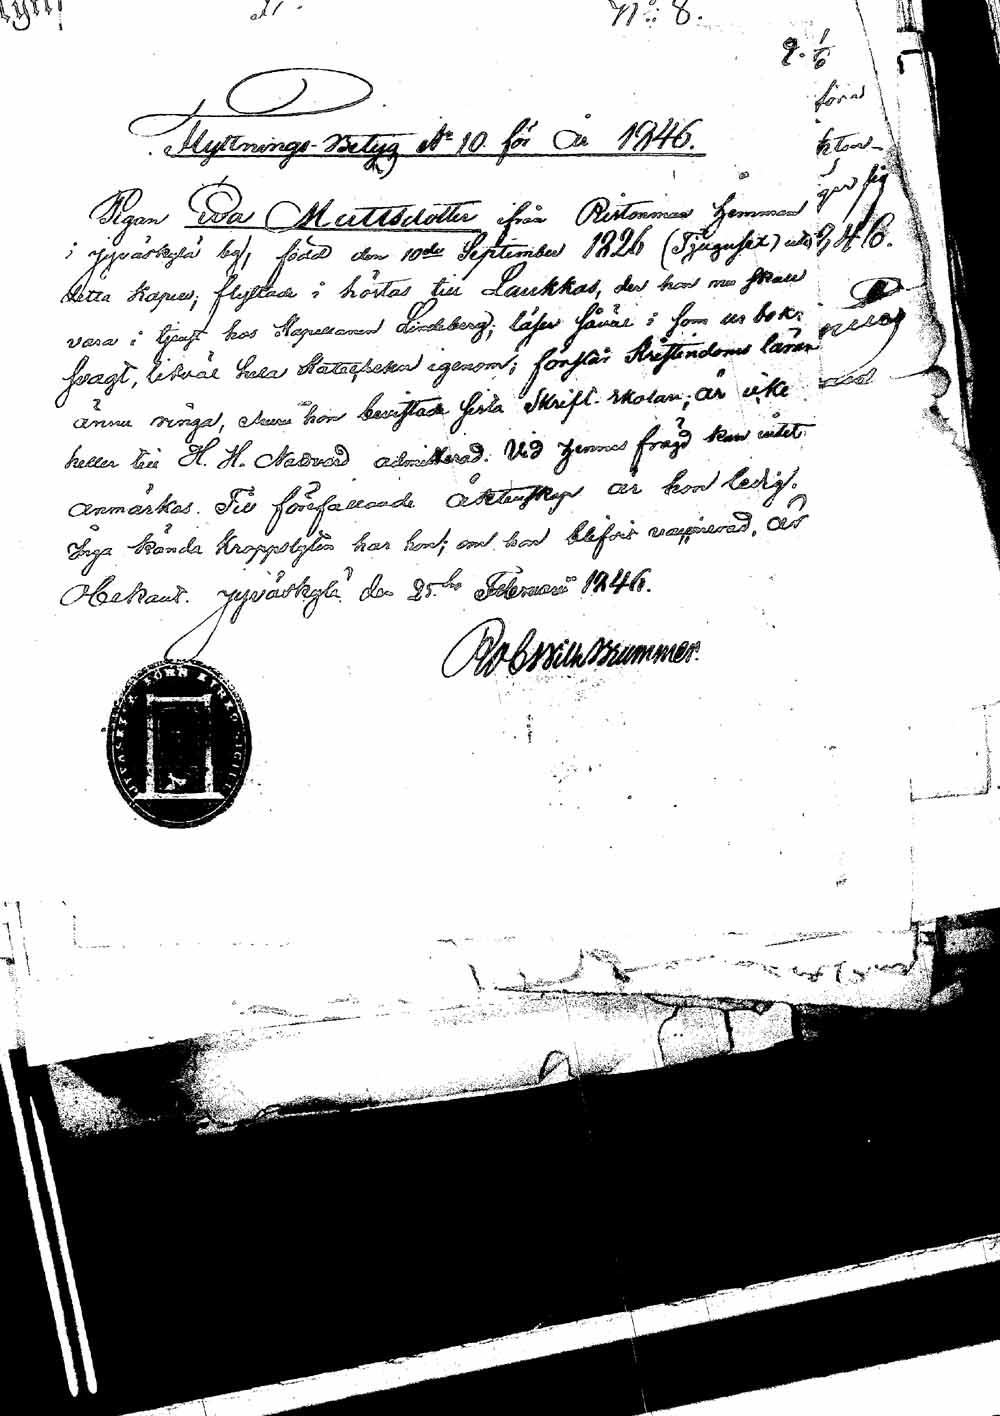 N:o 8.
Flyttnings-Betyg No 10. för År 1846.
Pigan Eva Mattsdotter ifrån Ristonmaa hemman
i Jyväskylä by, född den 10de September 1826 (Tjugusex) uti
detta Kapell, flyttade i höstas till Laukkas, der hon nu skall
vara i tjenst hos Kapellanen Lindeberg; läser såväl i som ur bok
svagt, likväl hela Katachesen igenom; förstår Kristendoms läran
ännu ringa, ehuru hon bevistade sista Skrift-skolan; är icke
heller till H. H. Nattvard admitterad. Vid hennes frägd kan intet
anmärkas. Till förefallande äktenskap är hon ledig.
Inga kända Kroppslyten har hon; om hon blifvit vaccinerad, är
obekant. Jyväskylä den 25 Februarii 1846.
Brummer.